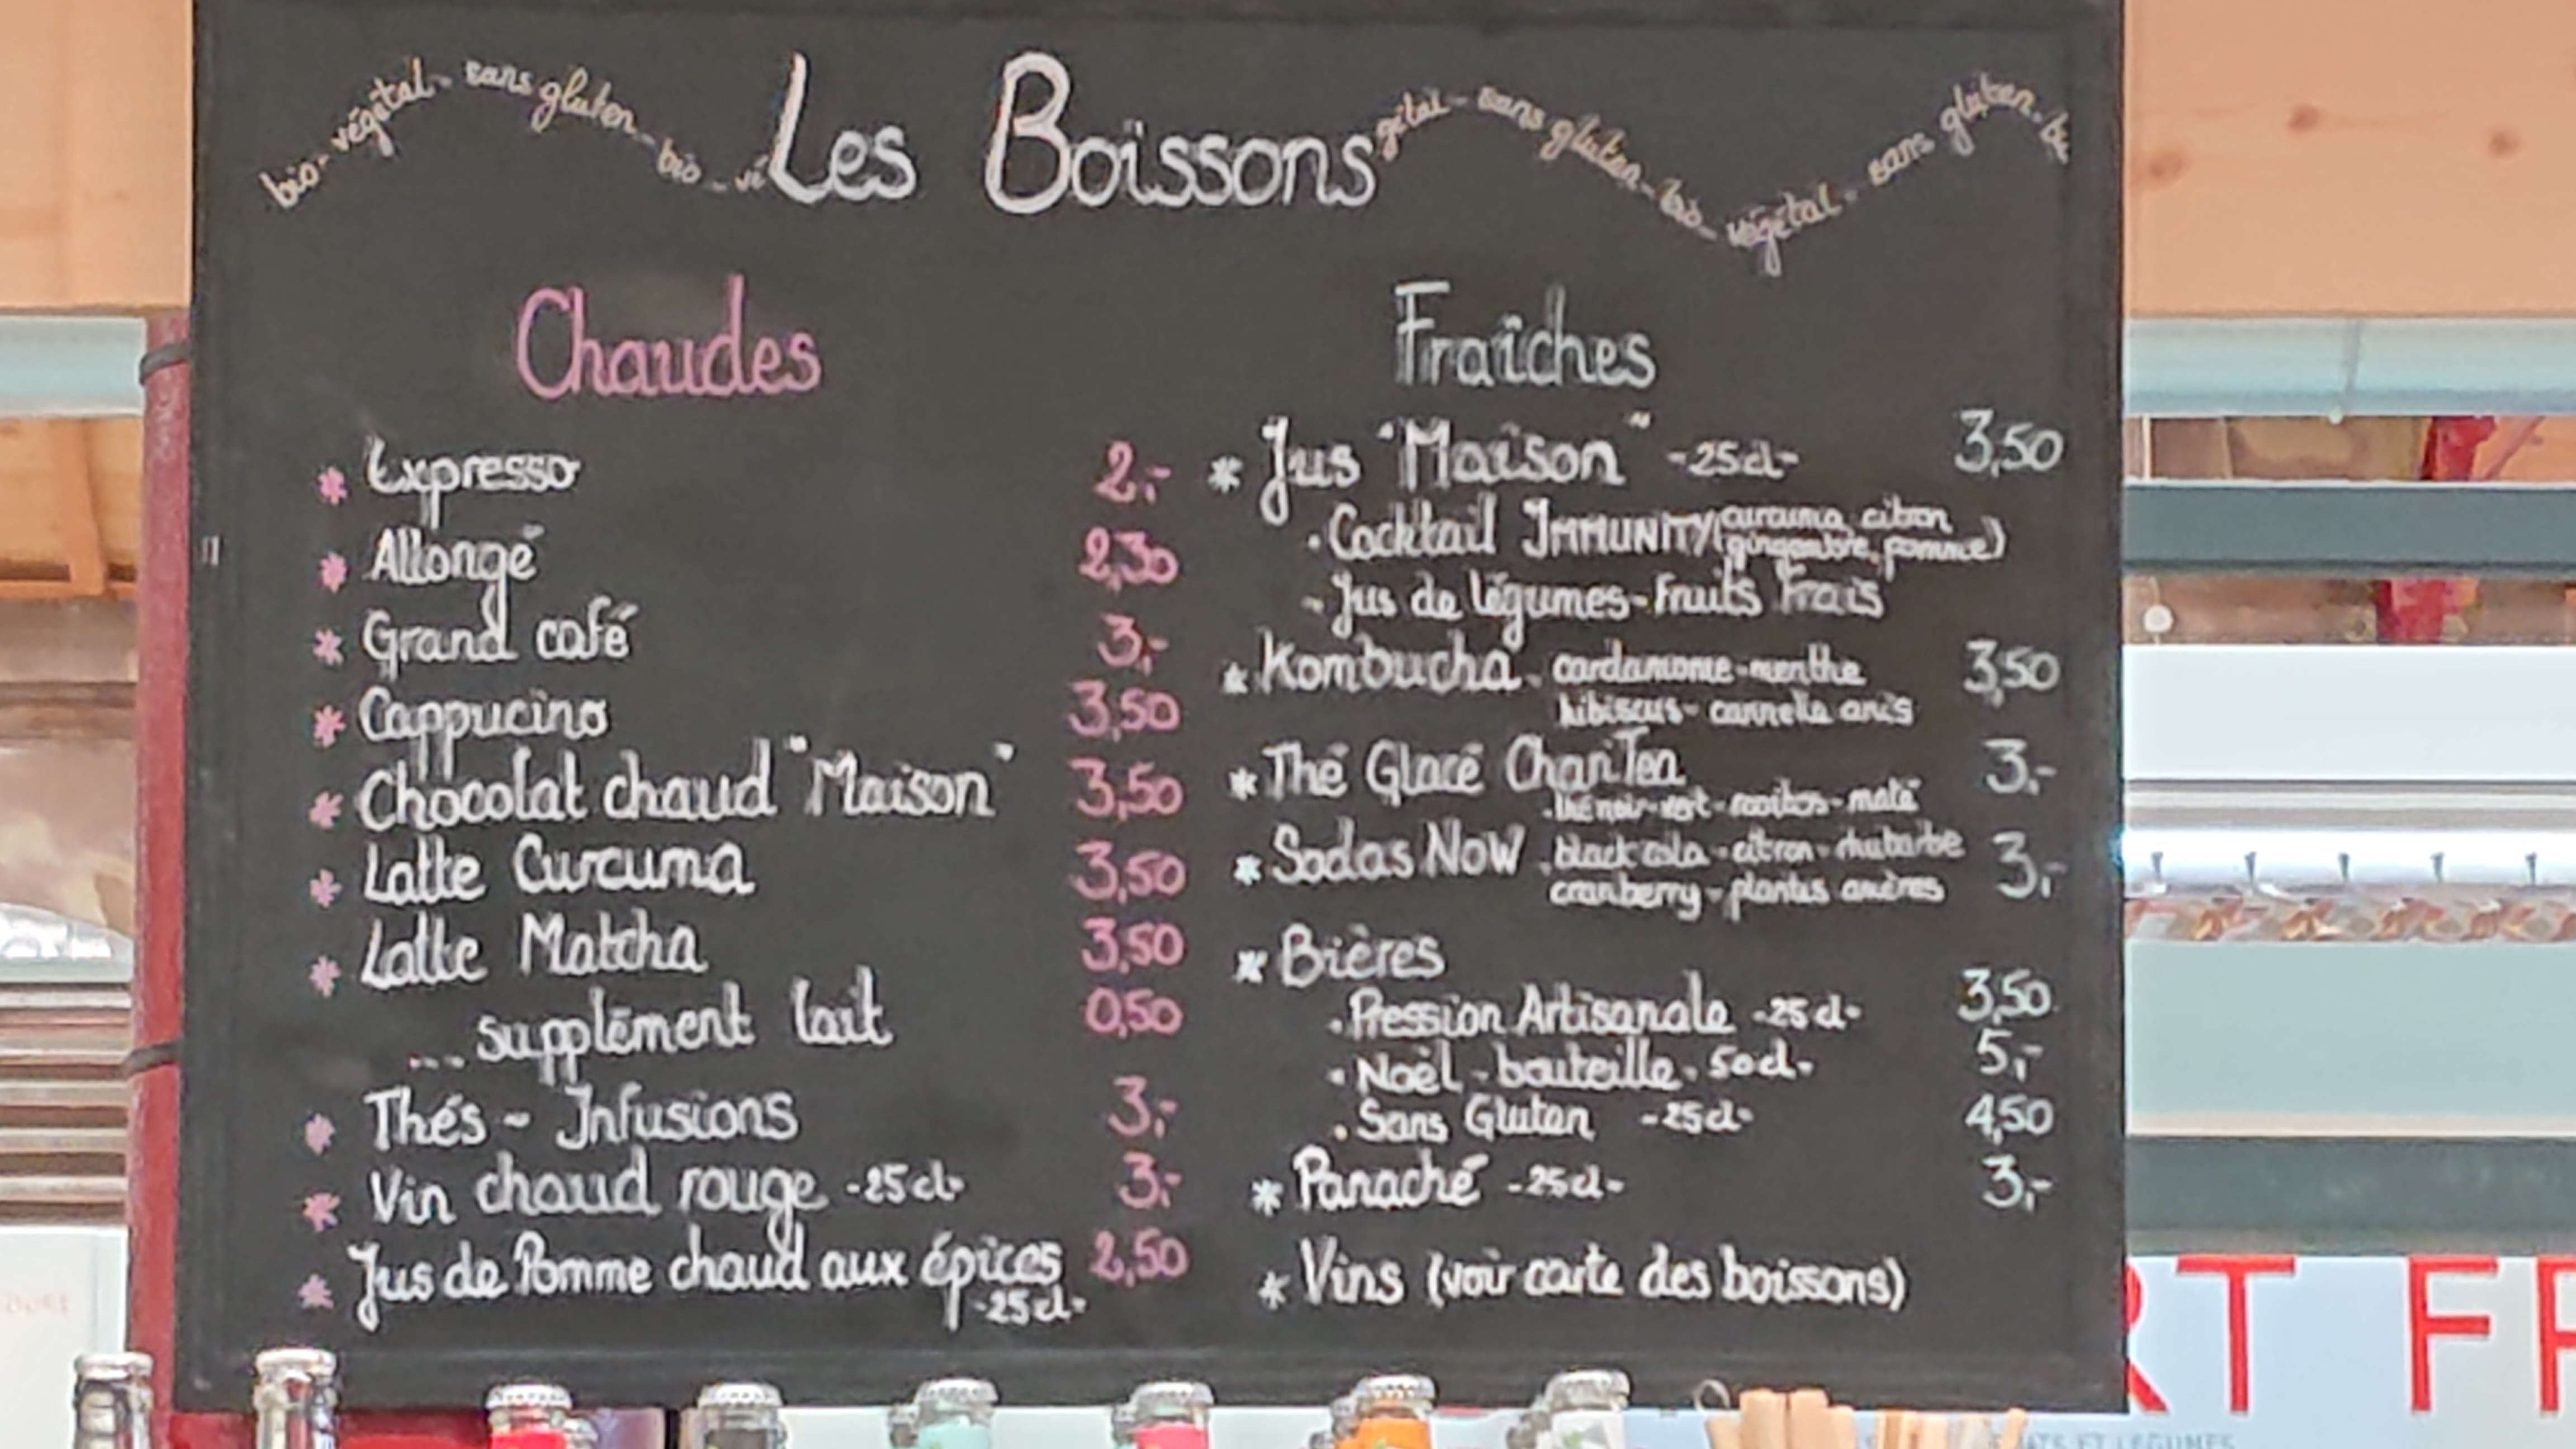 bio - végétal - sans gluten - bio - vé
Les Boissons
gétal - sans gluten - bio - végétal - sans gluten - bi
Chaudes
* Expresso 2,-
* Allongé 2,30
* Grand café 3,-
* Cappucino 3,50
* Chocolat chaud "Maison" 3,50
* Latte Curcuma 3,50
* Latte Matcha 3,50
... supplément lait 0,50
* Thés - Infusions 3,-
* Vin chaud rouge -25cl- 3,-
* Jus de Pomme chaud aux épices 2,50
-25cl-
Fraîches
* Jus "Maison" -25cl- 3,50
- Cocktail IMMUNITY (curcuma, citron
gingembre, pomme)
- Jus de légumes - Fruits Frais
* Kombucha - cardamome - menthe 3,50
hibiscus - cannelle anis
* Thé Glacé ChariTea 3,-
- thé noir - vert - rooibos - maté
* Sodas NOW - black cola - citron - rhubarbe 3,-
cranberry - plantes amères
* Bières
- Pression Artisanale -25cl- 3,50
- Noël - bouteille - 50cl - 5,-
- Sans Gluten -25cl- 4,50
* Panaché -25cl- 3,-
* Vins (voir carte des boissons)
RT FR